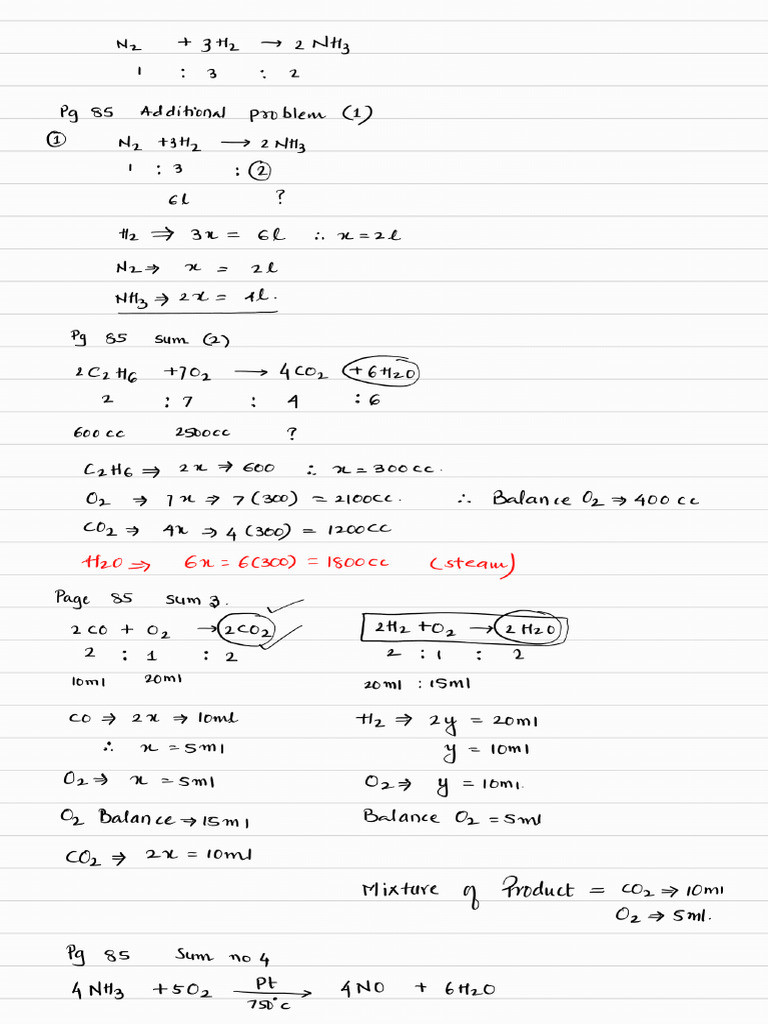 N2 + 3H2 → 2 NH3
1 : 3 : 2
Pg 85 Additional problem (1)
① N2 + 3H2 → 2 NH3
1 : 3 : 2
6l ?
H2 ⇒ 3x = 6l ∴ x = 2l
N2 ⇒ x = 2l
NH3 ⇒ 2x = 4l.
Pg 85 sum (2)
2C2H6 + 7O2 → 4CO2 + 6H2O
2 : 7 : 4 : 6
600 cc 2500cc ?
C2H6 ⇒ 2x → 600 ∴ x = 300cc.
O2 → 7x → 7(300) = 2100cc. ∴ Balance O2 → 400 cc
CO2 → 4x → 4(300) = 1200cc
H2O ⇒ 6x = 6(300) = 1800cc (steam)
Page 85 sum 3.
2CO + O2 → 2CO2 2H2 + O2 → 2H2O
2 : 1 : 2 2 : 1 : 2
10ml 20ml 20ml : 15ml
CO ⇒ 2x → 10ml H2 ⇒ 2y = 20ml
∴ x = 5ml y = 10ml
O2 ⇒ x = 5ml O2 ⇒ y = 10ml.
O2 Balance → 15ml Balance O2 = 5ml
CO2 ⇒ 2x = 10ml
Mixture of Product = CO2 → 10ml
O2 → 5ml.
Pg 85 Sum no 4
4NH3 + 5O2 Pt → 4NO + 6H2O
750°c